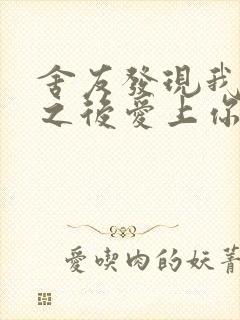 舍友發現我
之後愛上你
愛喫肉的妖菁